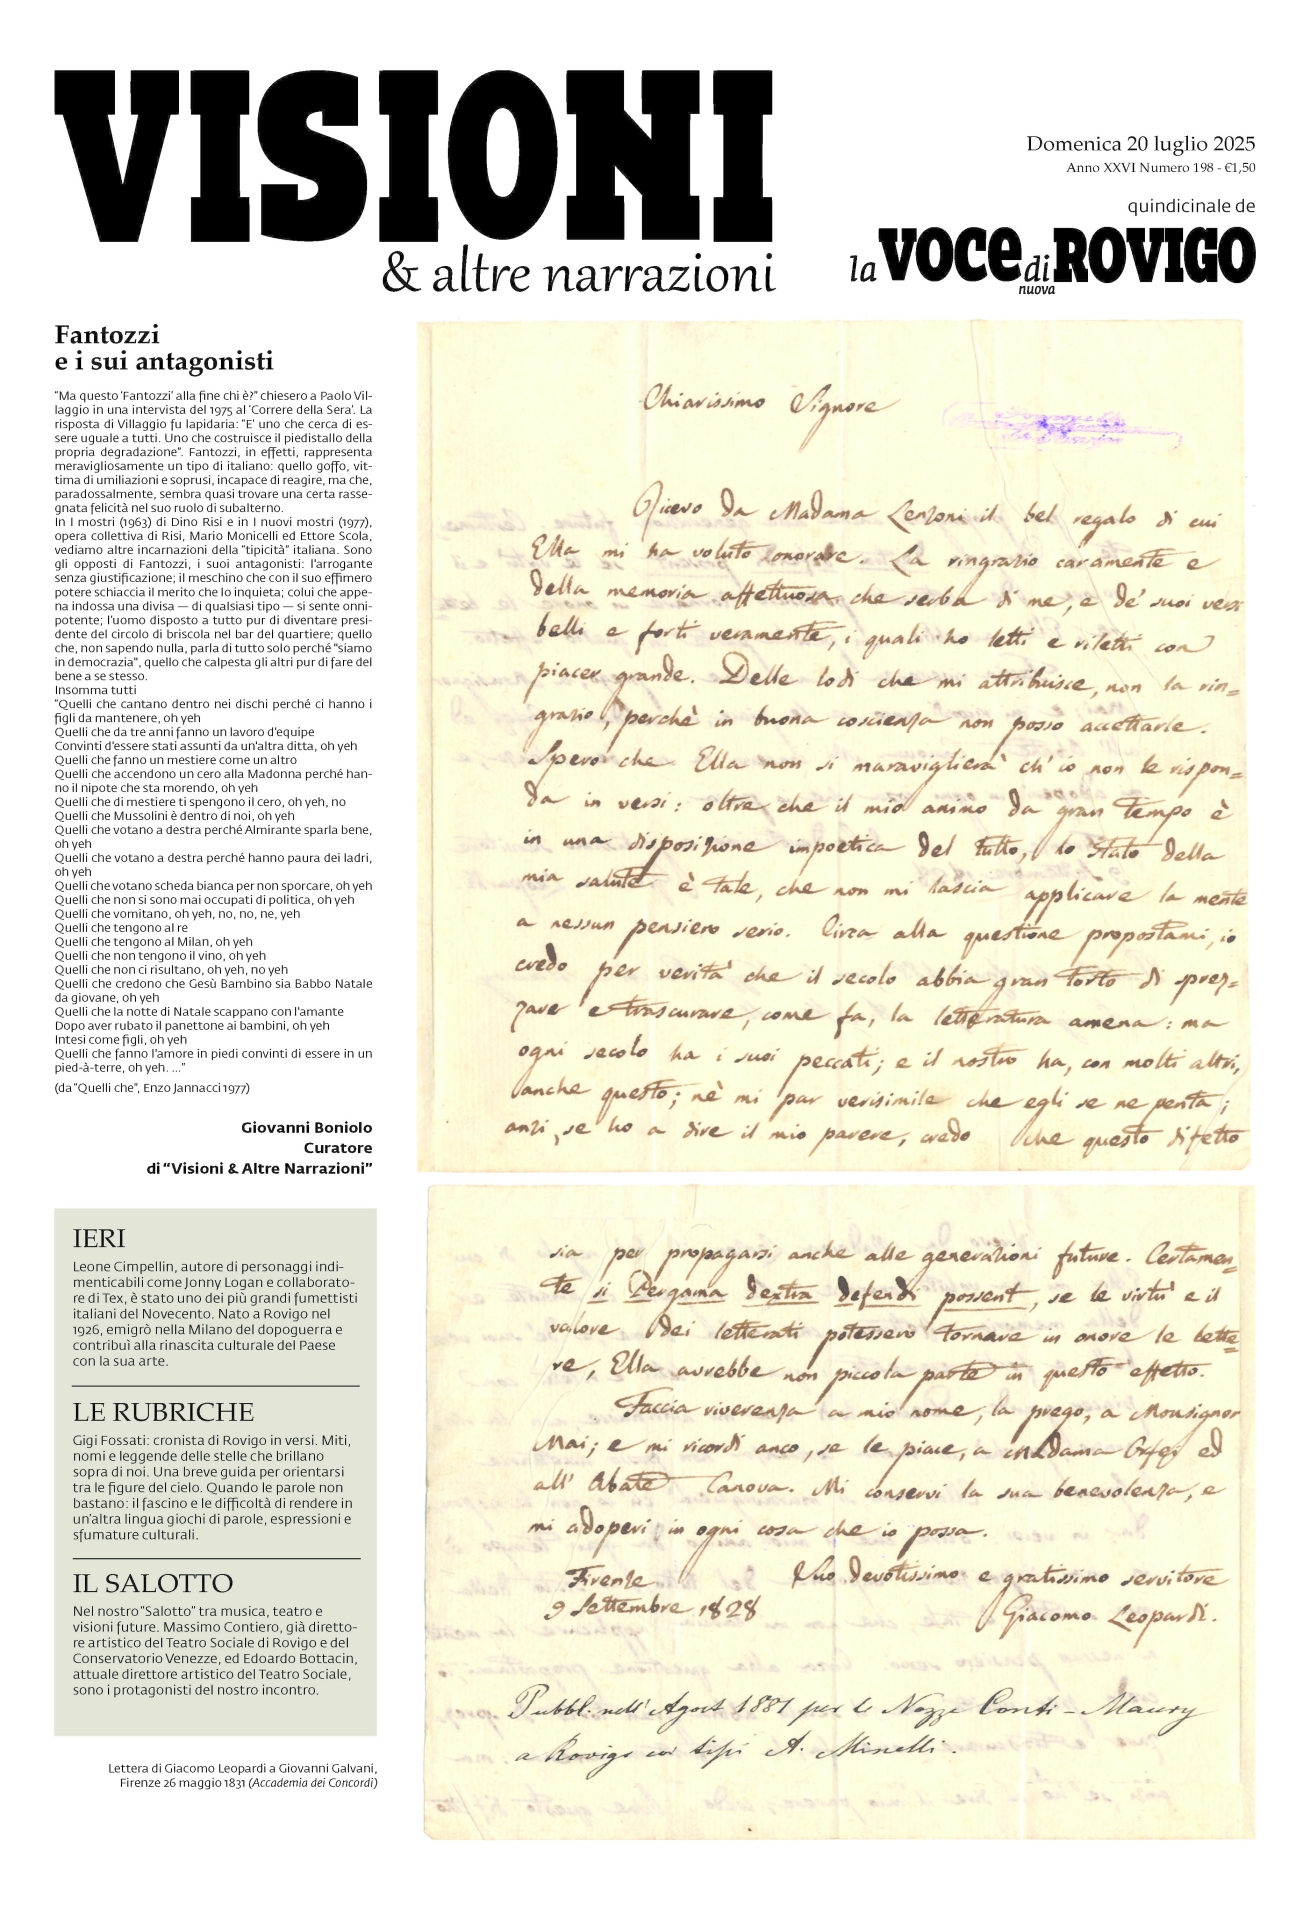 VISIONI
& altre narrazioni
Domenica 20 luglio 2025
Anno XXVI Numero 198 - €1,50
quindicinale de
la VOCE di ROVIGO
nuova
Fantozzi
e i sui antagonisti
“Ma questo ‘Fantozzi’ alla fine chi è?” chiesero a Paolo Vil-
laggio in una intervista del 1975 al ‘Correre della Sera’. La
risposta di Villaggio fu lapidaria: “E’ uno che cerca di es-
sere uguale a tutti. Uno che costruisce il piedistallo della
propria degradazione”. Fantozzi, in effetti, rappresenta
meravigliosamente un tipo di italiano: quello goffo, vit-
tima di umiliazioni e soprusi, incapace di reagire, ma che,
paradossalmente, sembra quasi trovare una certa rasse-
gnata felicità nel suo ruolo di subalterno.
In I mostri (1963) di Dino Risi e in I nuovi mostri (1977),
opera collettiva di Risi, Mario Monicelli ed Ettore Scola,
vediamo altre incarnazioni della “tipicità” italiana. Sono
gli opposti di Fantozzi, i suoi antagonisti: l’arrogante
senza giustificazione; il meschino che con il suo effimero
potere schiaccia il merito che lo inquieta; colui che appe-
na indossa una divisa — di qualsiasi tipo — si sente onni-
potente; l’uomo disposto a tutto pur di diventare presi-
dente del circolo di briscola nel bar del quartiere; quello
che, non sapendo nulla, parla di tutto solo perché "siamo
in democrazia", quello che calpesta gli altri pur di fare del
bene a se stesso.
Insomma tutti
“Quelli che cantano dentro nei dischi perché ci hanno i
figli da mantenere, oh yeh
Quelli che da tre anni fanno un lavoro d'equipe
Convinti d'essere stati assunti da un'altra ditta, oh yeh
Quelli che fanno un mestiere come un altro
Quelli che accendono un cero alla Madonna perché han-
no il nipote che sta morendo, oh yeh
Quelli che di mestiere ti spengono il cero, oh yeh, no
Quelli che Mussolini è dentro di noi, oh yeh
Quelli che votano a destra perché Almirante sparla bene,
oh yeh
Quelli che votano a destra perché hanno paura dei ladri,
oh yeh
Quelli che votano scheda bianca per non sporcare, oh yeh
Quelli che non si sono mai occupati di politica, oh yeh
Quelli che vomitano, oh yeh, no, no, ne, yeh
Quelli che tengono al re
Quelli che tengono al Milan, oh yeh
Quelli che non tengono il vino, oh yeh
Quelli che non ci risultano, oh yeh, no yeh
Quelli che credono che Gesù Bambino sia Babbo Natale
da giovane, oh yeh
Quelli che la notte di Natale scappano con l'amante
Dopo aver rubato il panettone ai bambini, oh yeh
Intesi come figli, oh yeh
Quelli che fanno l'amore in piedi convinti di essere in un
pied-à-terre, oh yeh. ...”
(da “Quelli che”, Enzo Jannacci 1977)
Giovanni Boniolo
Curatore
di “Visioni & Altre Narrazioni”
IERI
Leone Cimpellin, autore di personaggi indi-
menticabili come Jonny Logan e collaborato-
re di Tex, è stato uno dei più grandi fumettisti
italiani del Novecento. Nato a Rovigo nel
1926, emigrò nella Milano del dopoguerra e
contribuì alla rinascita culturale del Paese
con la sua arte.
LE RUBRICHE
Gigi Fossati: cronista di Rovigo in versi. Miti,
nomi e leggende delle stelle che brillano
sopra di noi. Una breve guida per orientarsi
tra le figure del cielo. Quando le parole non
bastano: il fascino e le difficoltà di rendere in
un’altra lingua giochi di parole, espressioni e
sfumature culturali.
IL SALOTTO
Nel nostro “Salotto” tra musica, teatro e
visioni future. Massimo Contiero, già diretto-
re artistico del Teatro Sociale di Rovigo e del
Conservatorio Venezze, ed Edoardo Bottacin,
attuale direttore artistico del Teatro Sociale,
sono i protagonisti del nostro incontro.
Lettera di Giacomo Leopardi a Giovanni Galvani,
Firenze 26 maggio 1831 (Accademia dei Concordi)
Chiarissimo Signore
Ricevo da Madama Lenzoni il bel regalo di cui
Ella mi ha voluto onorare. La ringrazio caramente e
della memoria affettuosa che serba di me, e de' suoi versi
belli e forti veramente, i quali ho letti e riletti con
piacer grande. Delle lodi che mi attribuisce, non la rin=
grazio, perchè in buona coscienza non posso accettarle.
Spero che Ella non si maraviglierà ch' io non le rispon=
da in versi: oltre che il mio animo da gran tempo è
in una disposizione impoetica del tutto, lo stato della
mia salute è tale, che non mi lascia applicare la mente
a nessun pensiero serio. Circa alla questione propostami, io
credo per verità che il secolo abbia gran torto di sprez=
zare e trascurare, come fa, la letteratura amena: ma
ogni secolo ha i suoi peccati; e il nostro ha, con molti altri,
anche questo; nè mi par verisimile che egli se ne penta;
anzi, se ho a dire il mio parere, credo che questo difetto
sia per propagarsi anche alle generazioni future. Certamen=
te si Pergama dextra defendi possent, se le virtù e il
valore dei letterati potessero tornare in onore le lette=
re, Ella avrebbe non piccola parte in questo effetto.
Faccia riverenza a mio nome, la prego, a Monsignor
Mai; e mi ricordi anco, se le piace, a Madama Orfei ed
all' Abate Canova. Mi conservi la sua benevolenza, e
mi adoperi in ogni cosa che io possa.
Firenze
9 Settembre 1828
Suo devotissimo e gratissimo servitore
Giacomo Leopardi.
Pubbl. nell' Agost 1881 per le Nozze Conti - Maury
a Rovigo coi tipi A. Minelli.